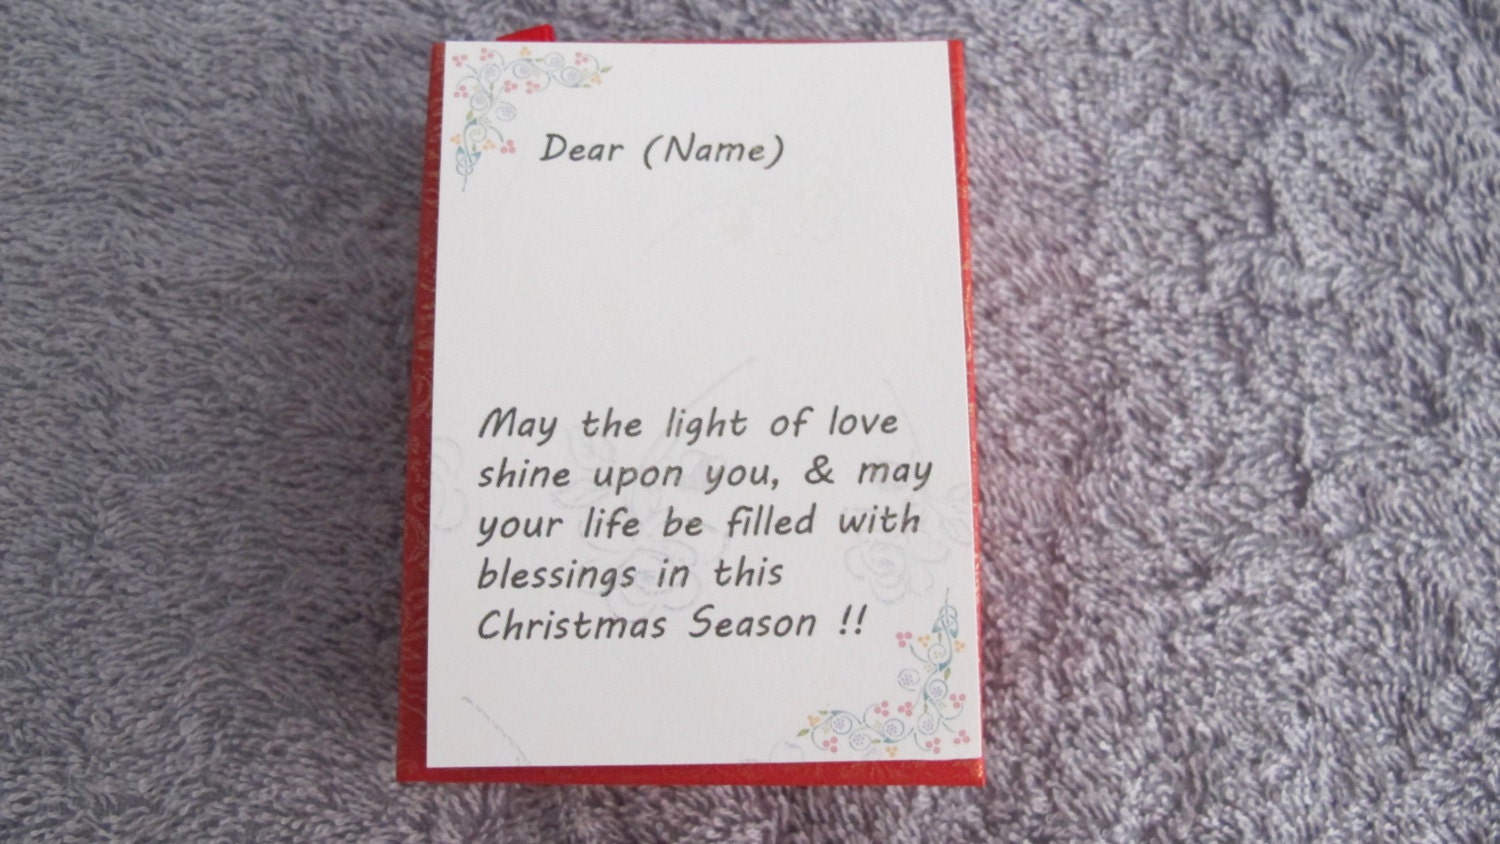 Dear (Name)
May the light of love
shine upon you, & may
your life be filled with
blessings in this
Christmas Season !!